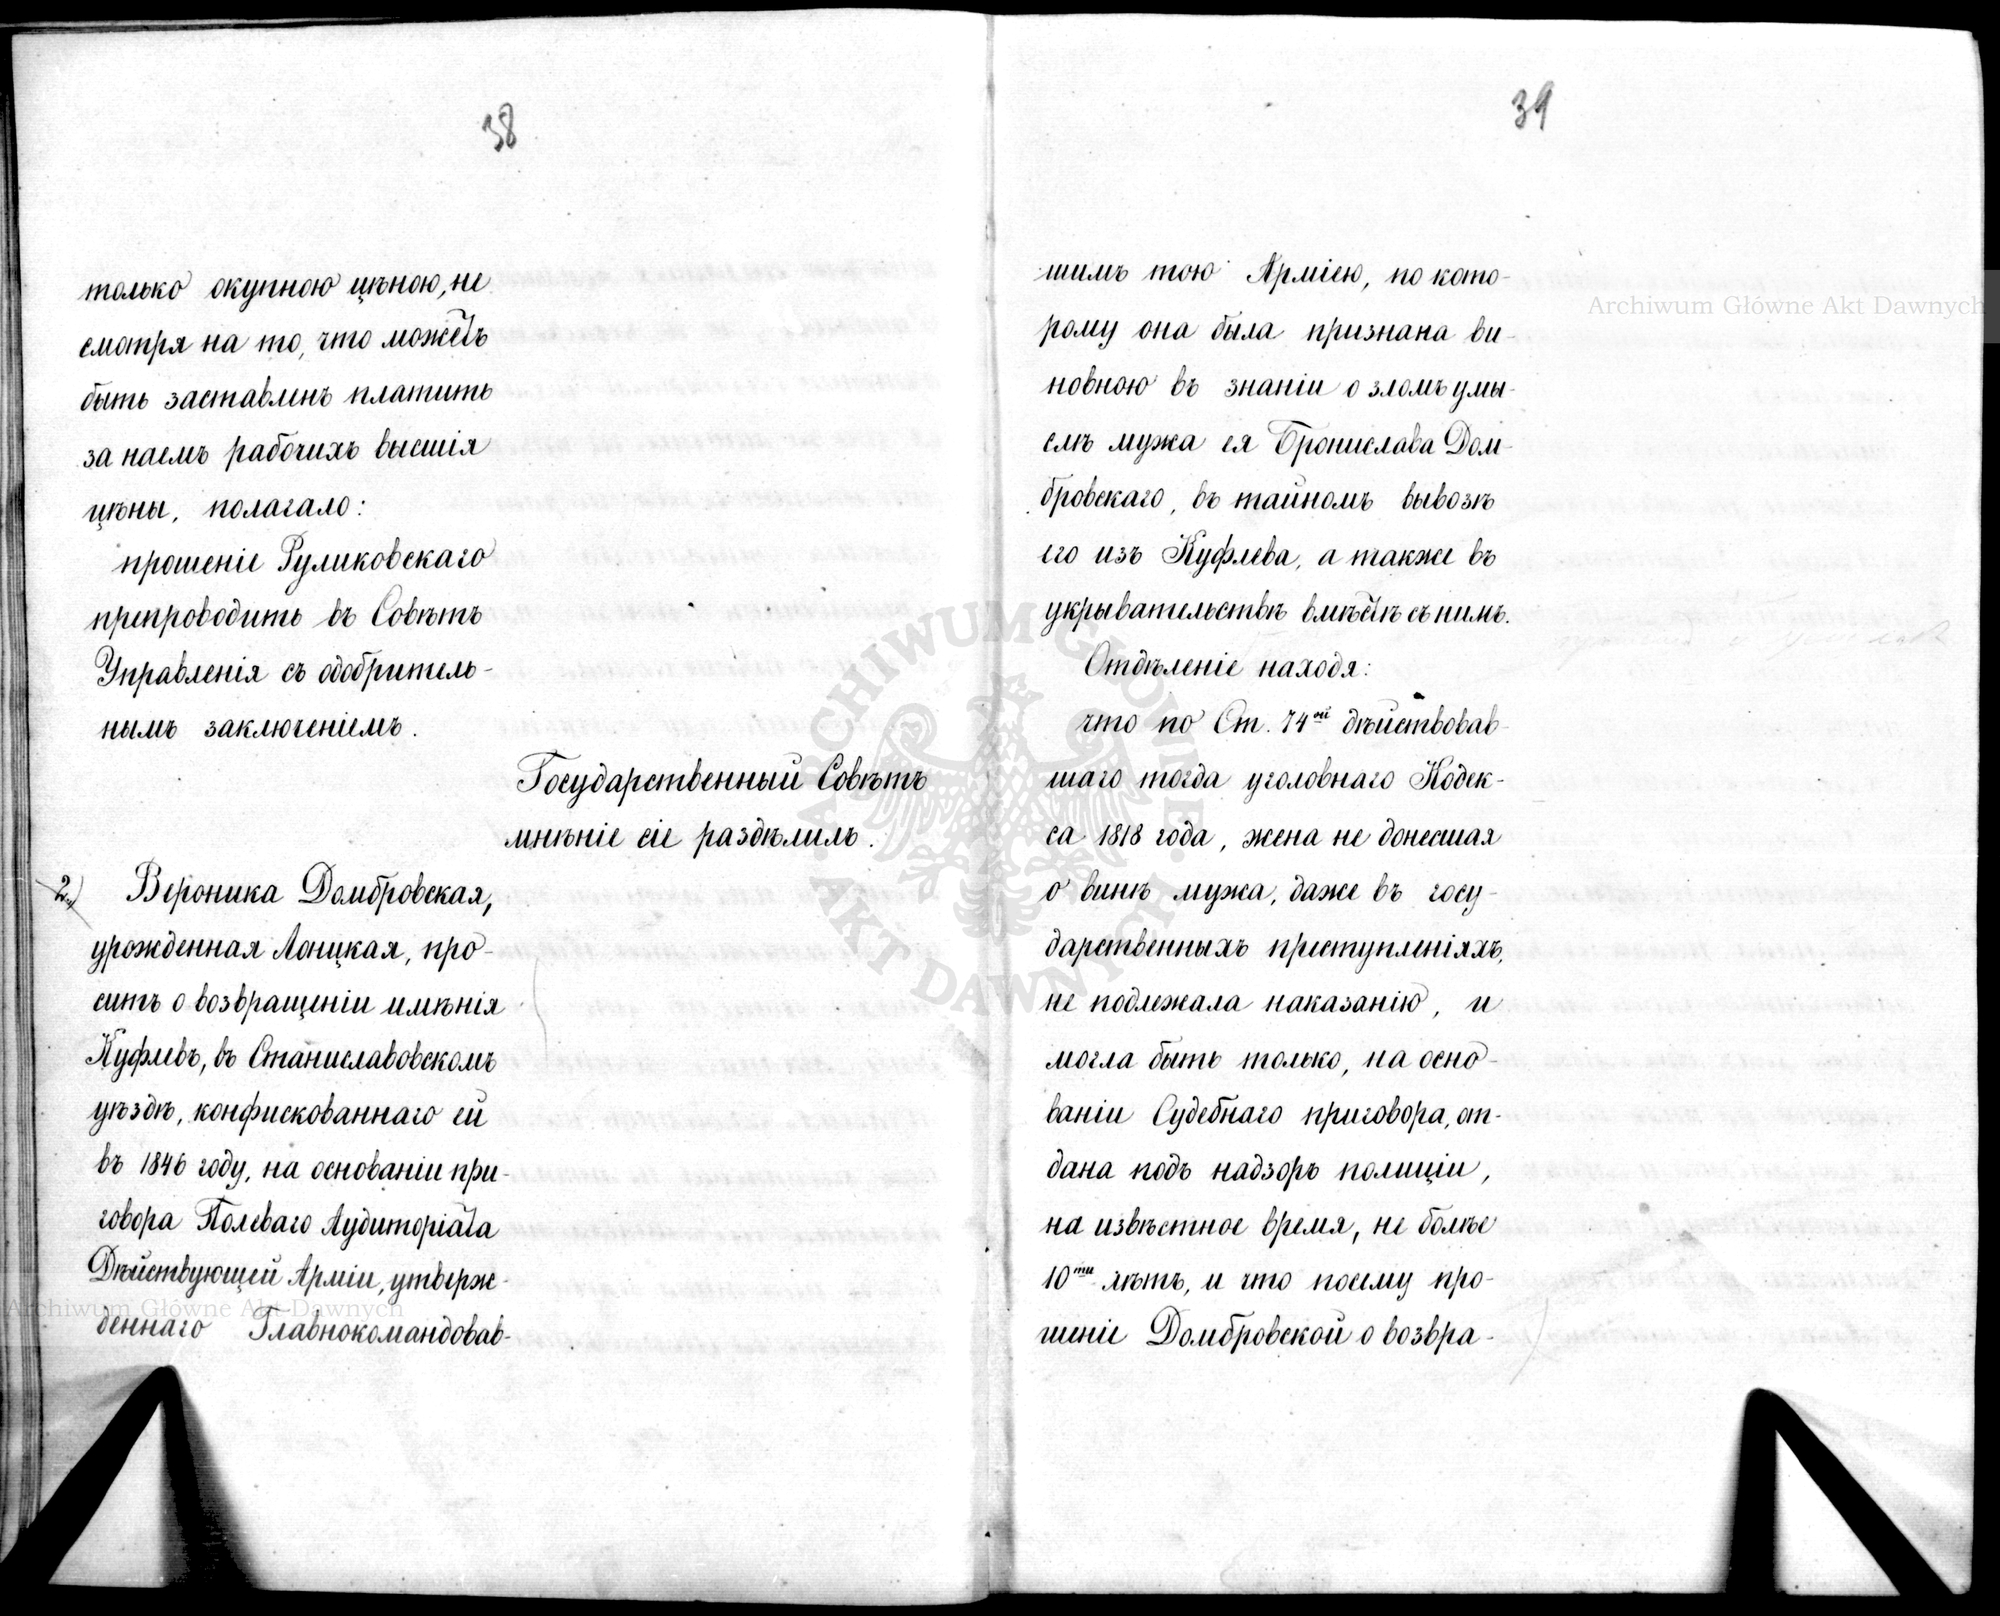 38
только окупною цѣною, не
смотря на то, что можетъ
быть заставленъ платить
за наемъ рабочихъ высшія
цѣны, полагало:
прошеніе Руликовскаго
препроводить въ Совѣтъ
Управленія съ одобритель-
нымъ заключеніемъ.
Государственный Совѣтъ
мнѣніе сіе раздѣлилъ.
2) Вероника Домбровская,
урожденная Лонцкая, про-
ситъ о возвращеніи имѣнія
Куфлевъ, въ Станиславовскомъ
уѣздѣ, конфискованнаго ей
въ 1846 году, на основаніи при-
говора Полеваго Аудиторіата
Дѣйствующей Арміи, утверж-
деннаго Главнокомандовав-
39
шимъ тою Арміею, по кото-
рому она была признана ви-
новною въ знаніи о зломъ умы-
слѣ мужа ея Бронислава Дом-
бровскаго, въ тайномъ вывозѣ
его изъ Куфлева, а также въ
укрывательствѣ вмѣстѣ съ нимъ.
Отдѣленіе находя:
что по Ст. 74ой дѣйствовав-
шаго тогда уголовнаго Кодек-
са 1818 года, жена не донесшая
о винѣ мужа, даже въ госу-
дарственныхъ преступленіяхъ,
не подлежала наказанію, и
могла быть только, на осно-
ваніи Судебнаго приговора, от-
дана подъ надзоръ полиціи,
на извѣстное время, не болѣе
10ти лѣтъ, и что посему про-
шеніе Домбровской о возвра-
Archiwum Główne Akt Dawnych
Archiwum Główne Akt Dawnych
ARCHIWUM GŁÓWNE
AKT DAWNYCH